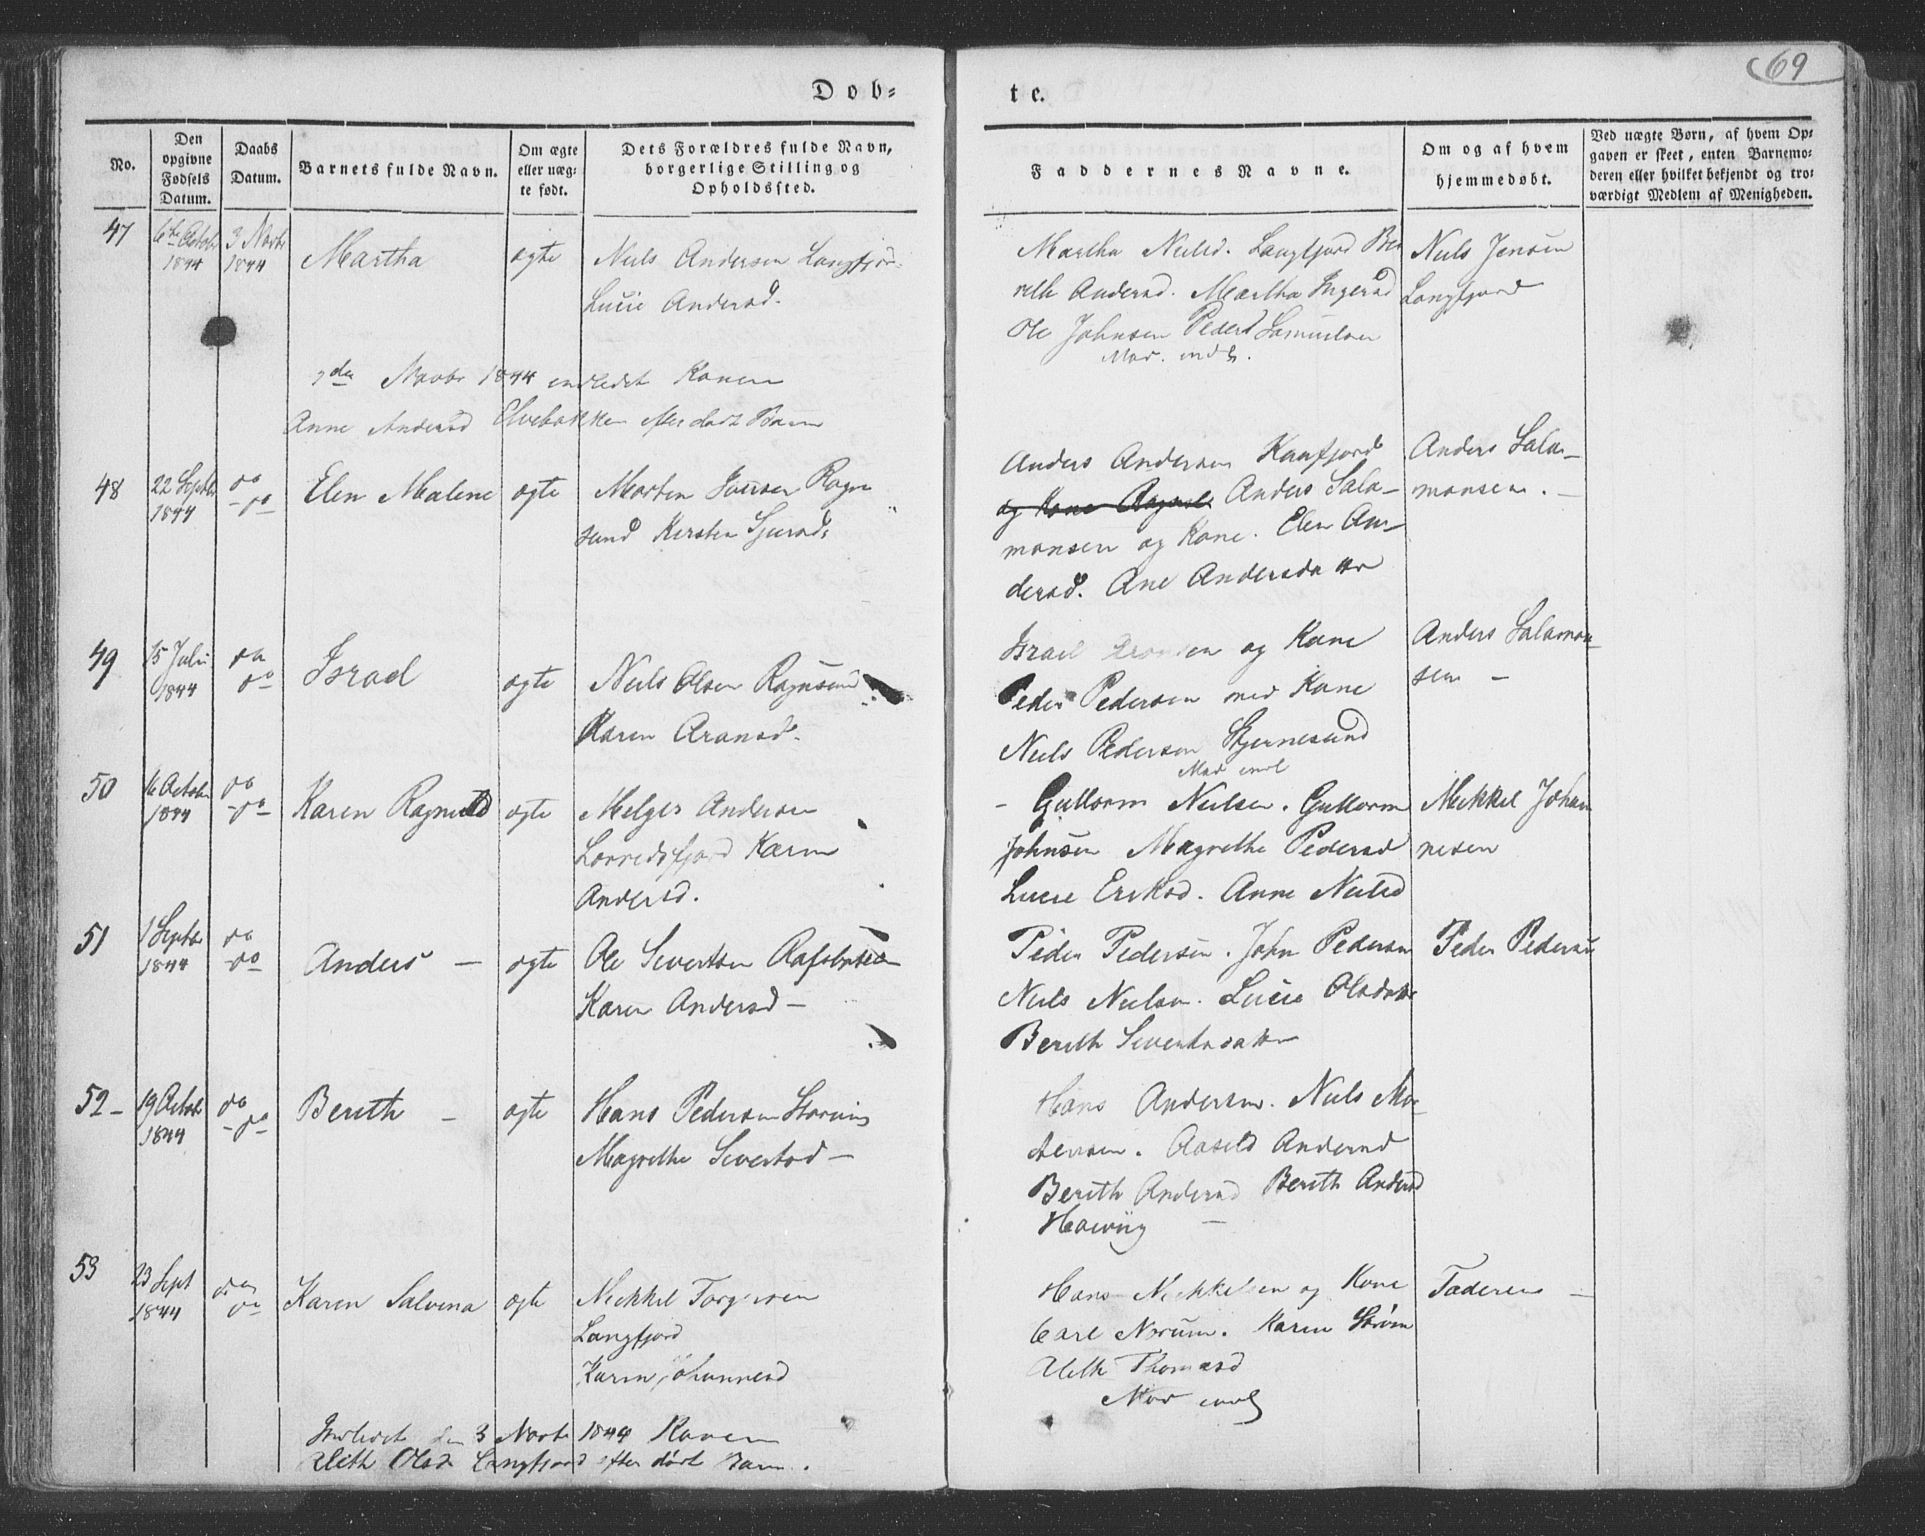 69
Døb-
te.
No.
Den opgivne Fødsels Datum.
Daabs Datum.
Barnets fulde Navn.
Om ægte eller uægte født.
Dets Forældres fulde Navn, borgerlige Stilling og Opholdssted.
Faddernes Navne.
Om og af hvem hjemmedøbt.
Ved uægte Børn, af hvem Opgaven er skeet, enten Barnemoderen eller hvilket bekjendt og troværdigt Medlem af Menigheden.
47
6te Octobr
1844
3 Novbr
1844
Martha
ægte
Niels Andersen Langfjor
Lucie Andersd.
Martha Nielsd. Langfjord Be-
reth Andersd. Martha Ingersd
Ole Johnsen Peder Samuelsen
Mod. indl.
Niels Jensen
Langfjord
Novbr 1844 indledet Konen
Anne Andersd Elvebakken efter dødt Barn
48
22 Septbr
1844
do
- do
Elen Malene
ægte
Morten Ragn
sund Kersten Sjursd.
Anders Andersen Kaafjord
og Kone Anders Sala-
monsen og Kone. Elen An-
dersd. Ane Andersdatter
Anders Sala-
monsen. -
49
15 Juli
1844
do
do
Israel
ægte
Niels Olsen Ragnsund
Karen Aronsd.
Israel Aronsen og Kone
Peder Pedersen med Kone
Niels Pedersen Stjernesund
Mod indl
Anders Salamon-
sen -
50
16 Octobr
1844
do
- do
Karen Ragnild
ægte
Melger Andersen
Karen
Andersd.
- Gullorm Nielsen. Gullorm
Johnsen Magrethe Pedersd
Lucie Eriksd. Anne Nielsd
Mekkel Johan
nesen
51
1 Septbr
1844
do
- do
Anders -
ægte
Ole Sivertsen Rafsbotn
Karen Andersd -
Peder Pedersen. John Pedersen
Niels Nielsen. Lucie Olsdatr
Berith Sivertsdatter
Peder Pedersen
52 -
19 Octobr
1844
do
- do
Berith -
ægte
Hans Pedersen Storvig
Magrethe Sivertsd -
Hans Andersen. Niels Mor-
tensen. Aasild Andersd
Berith Andersd Berith Andersd
-
53
23 Sept
1844
do
do
Karen Salvena
ægte
Mekkel Torgersen
Langfjord
Karen Johannesd
Hans Mekkelsen og Kone
Carl Norum. Karen Strøm
Aleth Thomasd
Mod indl
Faderen -
Indledet den 3 Novbr 1844 Konen
Aleth Olsd Langfjord efter dødt Barn.